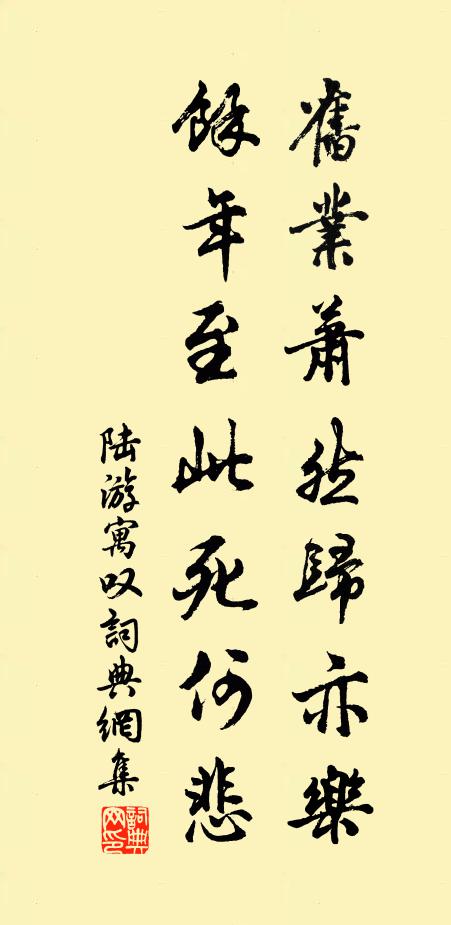 舊業蕭然歸亦樂
餘年至此死何悲
陆游寓叹詞典網集
詞典
网印